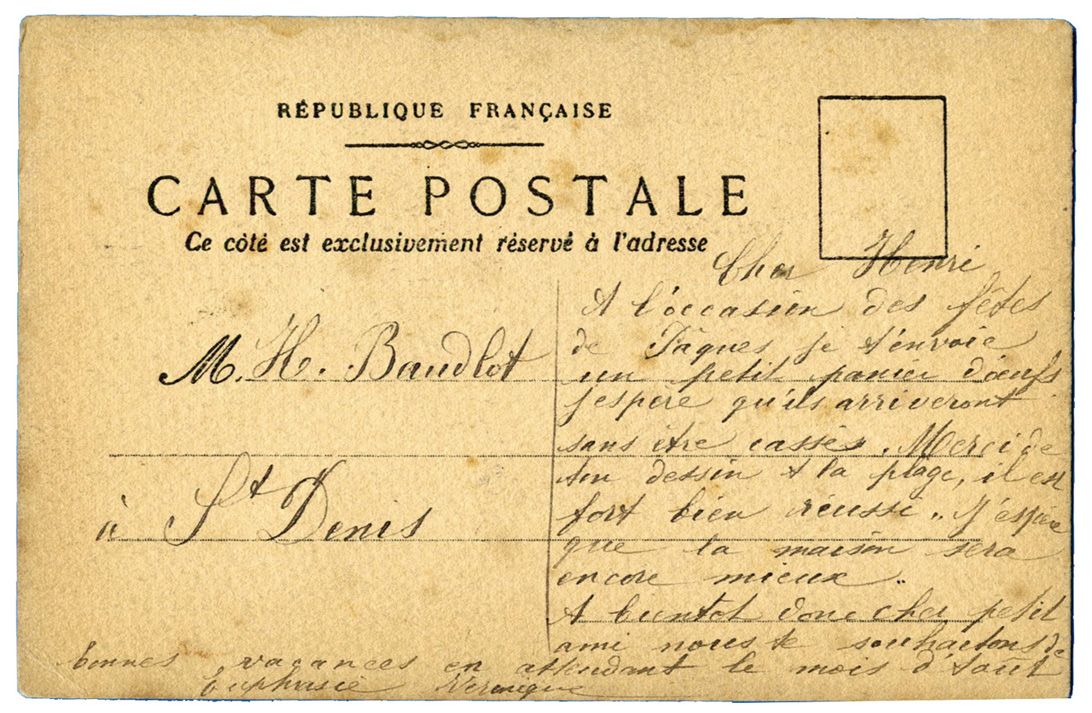 RÉPUBLIQUE FRANÇAISE
CARTE POSTALE
Ce côté est exclusivement réservé à l'adresse
M. H. Baudlot
à St Denis
Cher Henri
A l'occasion des fêtes
de Pâques je t'envoie
un petit panier d'œufs
j'espère qu'ils arriveront
sans être cassés. Merci de
ton dessin à la plage, il est
fort bien réussi. J'espère
que ta maison sera
encore mieux.
A bientot donc cher petit
ami nous te souhaitons de
bonnes vacances en attendant le mois d'Aout
Euphrasie